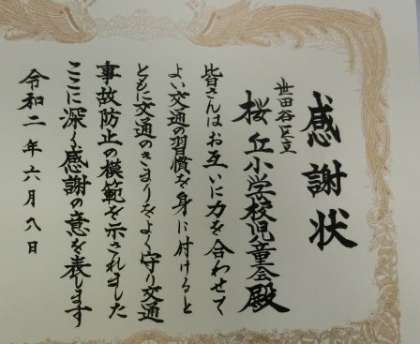 感謝状
世田谷区立
桜丘小学校児童会殿
皆さんはお互いに力を合わせて
よい交通の習慣を身に付けると
ともに交通のきまりをよく守り交通
事故防止の模範を示されました
ここに深く感謝の意を表します
令和二年六月八日